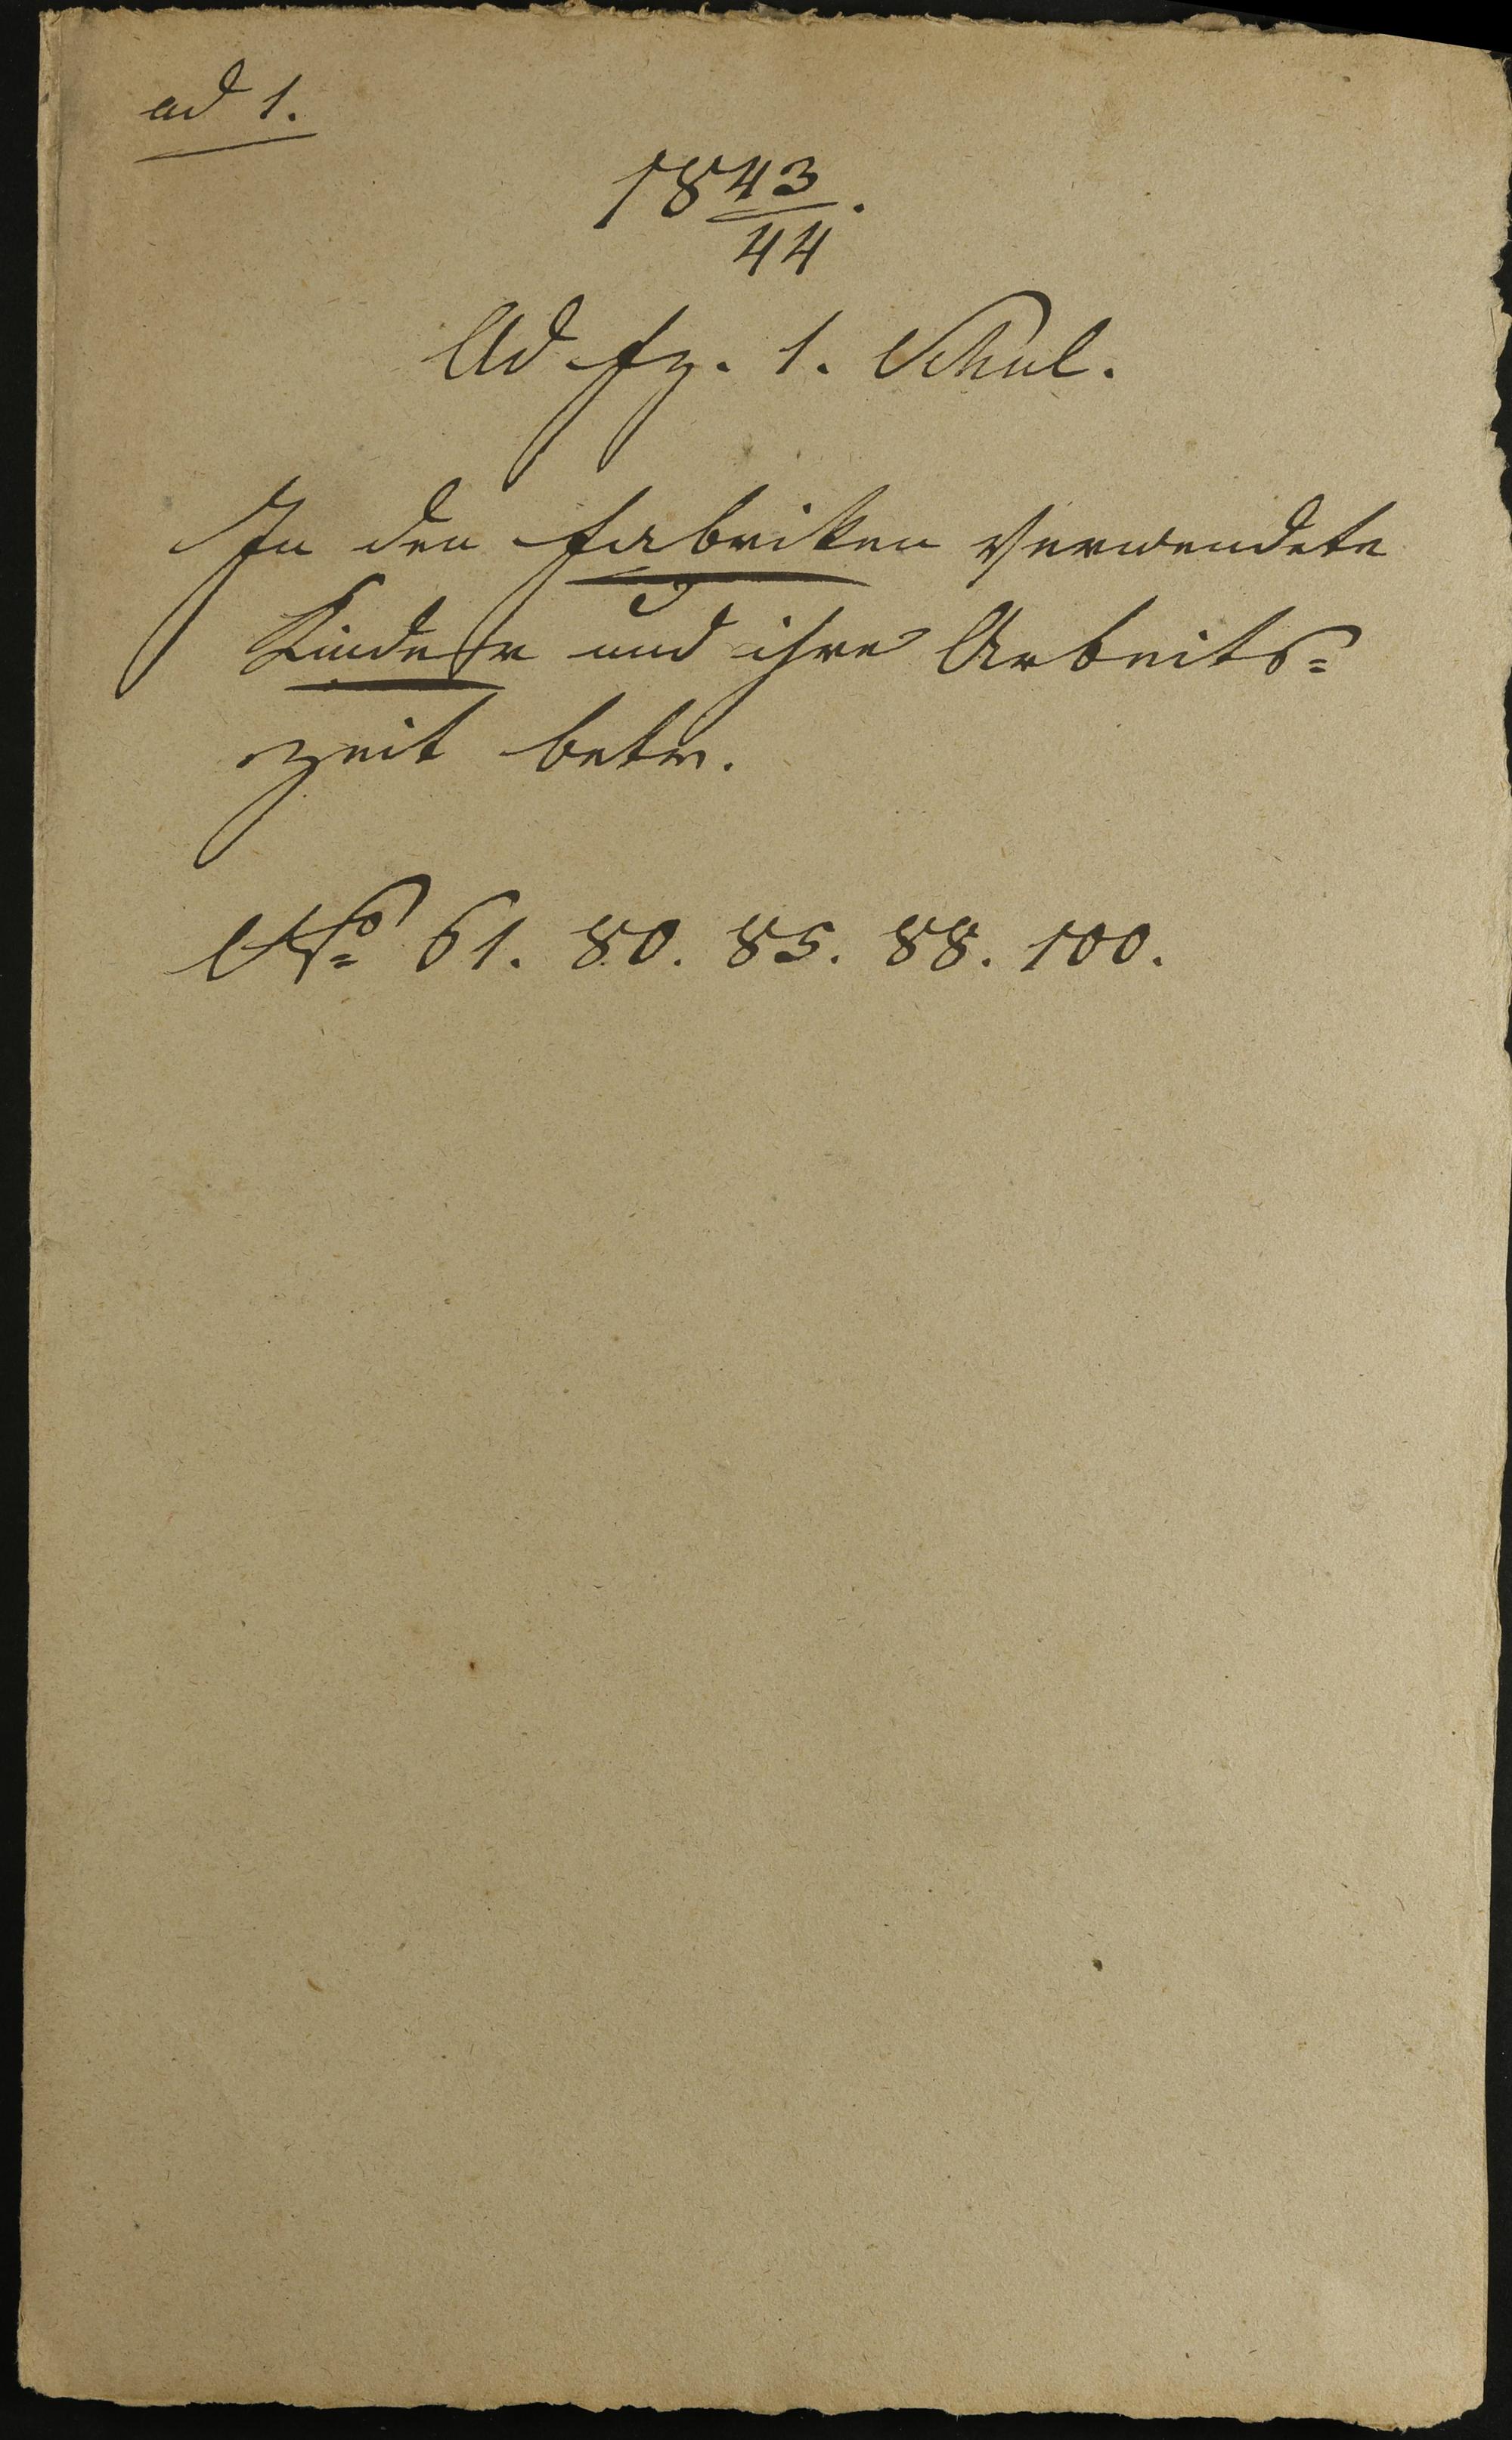 ad 1.
1843/44.
Ad fz. 1. Schul.
In den Fabriken verwendete
Kinder und ihre Arbeits=
zeit betr.
No 61. 80. 85. 88. 100.